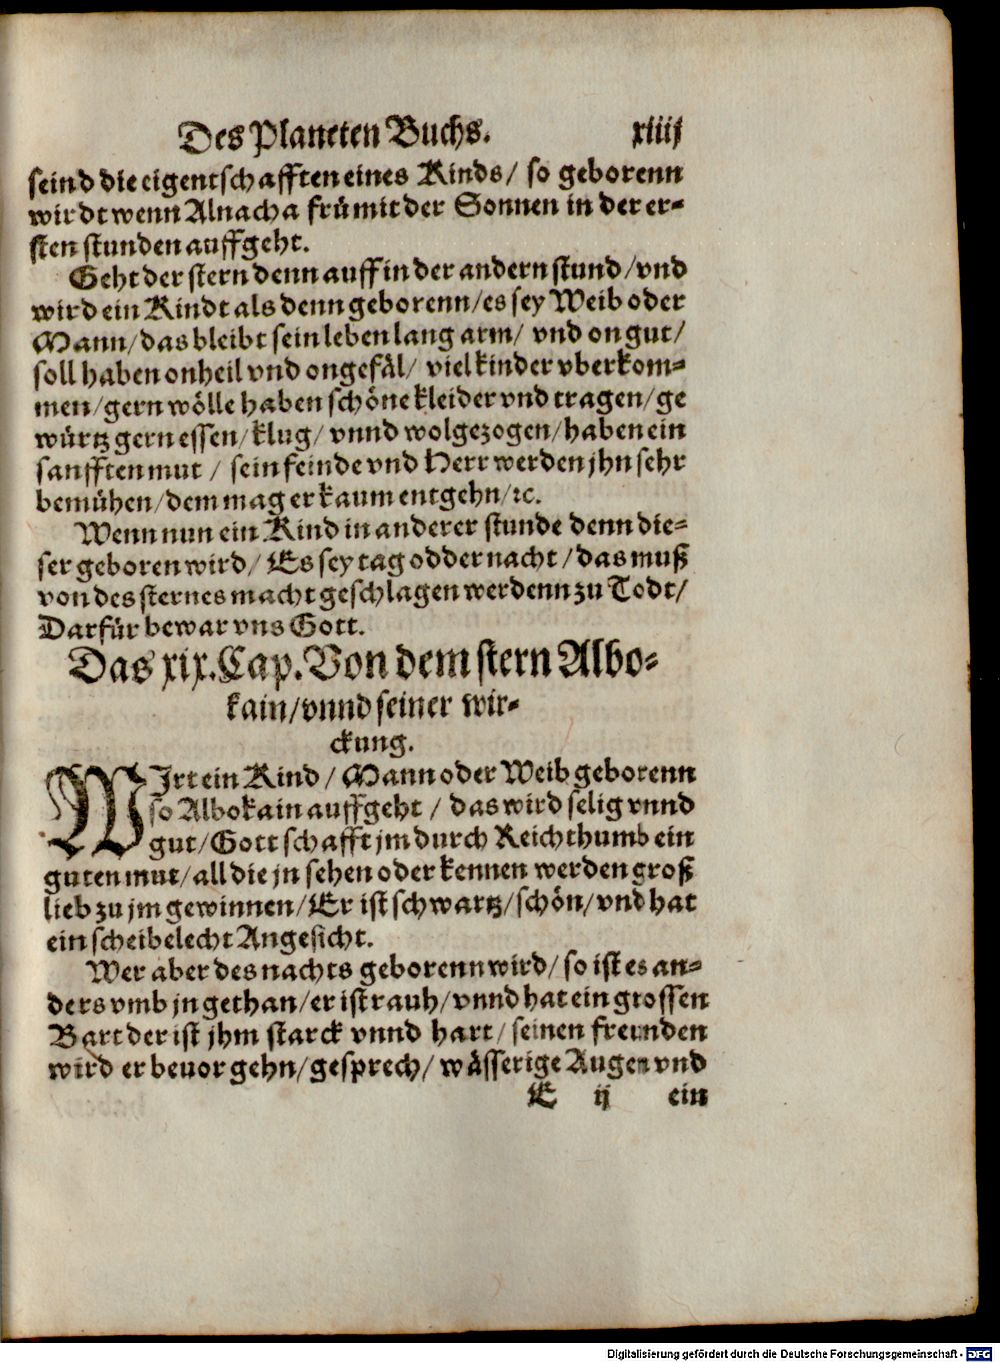 Des Planeten Buchs. xiiij
seind die eigentschafften eines Kinds/ so geborenn
wirdt wenn Alnacha frü mit der Sonnen in der er-
sten stunden auffgeht.
Geht der stern denn auff in der andern stund/vnd
wird ein Kindt als denn geborenn/es sey Weib oder
Mann/das bleibt sein leben lang arm/ vnd on gut/
soll haben onheil vnd ongefäl/ viel kinder vberkom-
men/gern wölle haben schöne kleider vnd tragen/ge
würtz gern essen/klug/ vnnd wolgezogen/haben ein
sanfften mut / sein feinde vnd Herr werden jhn sehr
bemühen/dem mag er kaum entgehn/⁊c.
Wenn nun ein Kind in anderer stunde denn die-
ser geboren wird/ Es sey tag odder nacht /das muß
von des sternes macht geschlagen werdenn zu Todt/
Darfür bewar vns Gott.
Das xix.Cap.Von dem stern Albo-
kain/vnnd seiner wir-
ckung.
WJrt ein Kind / Mann oder Weib geborenn
so Albokain auffgeht / das wird selig vnnd
gut/Gott schafft jm durch Reichthumb ein
guten mut/all die jn sehen oder kennen werden groß
lieb zu jm gewinnen/Er ist schwartz/schön/vnd hat
ein scheibelecht Angesicht.
Wer aber des nachts geborenn wird/so ist es an-
ders vmb jn gethan/er ist rauh/vnnd hat ein grossen
Bart der ist jhm starck vnnd hart/seinen freunden
wird er beuor gehn/gesprech/ wässerige Augen vnd
E ij ein
Digitalisierung gefördert durch die Deutsche Forschungsgemeinschaft - DFG